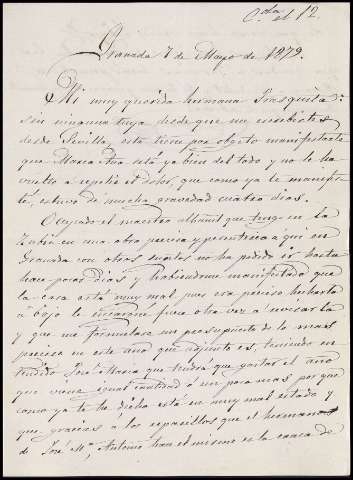 C.da el 12.
Granada 7 de Mayo de 1879.
Mi muy querida hermana Frasquita:
sin ninguna tuya desde que me escribistes
desde Sevilla, esta tiene por objeto manifestarte
que Maria Ana está ya bien del todo y no le ha
vuelto a repetir el dolor, que como ya te manifes
té, estuvo de mucha gravedad cuatro dias.
Ocupado el maestro albañil que tengo en la
Zubia en una obra precisa y perentoria aqui en
Granada con otros no ha podido ir hasta
hace pocos dias y habiendome manifestado que
la casa está muy mal, pues era preciso hecharla
a bajo le encargué fuera otra vez á avisarla
y que me formulase un presupuesto de lo mas
preciso en este año que adjunto es, teniendo en
tendido José Maria que tendra que gastar el año
que viene igual cantidad ó un poco mas por que
como ya te he dicho está en muy mal estado y
que, gracias a los reparillos que el hermano
de José M.ª, Antonio hace el mismo en la casa de